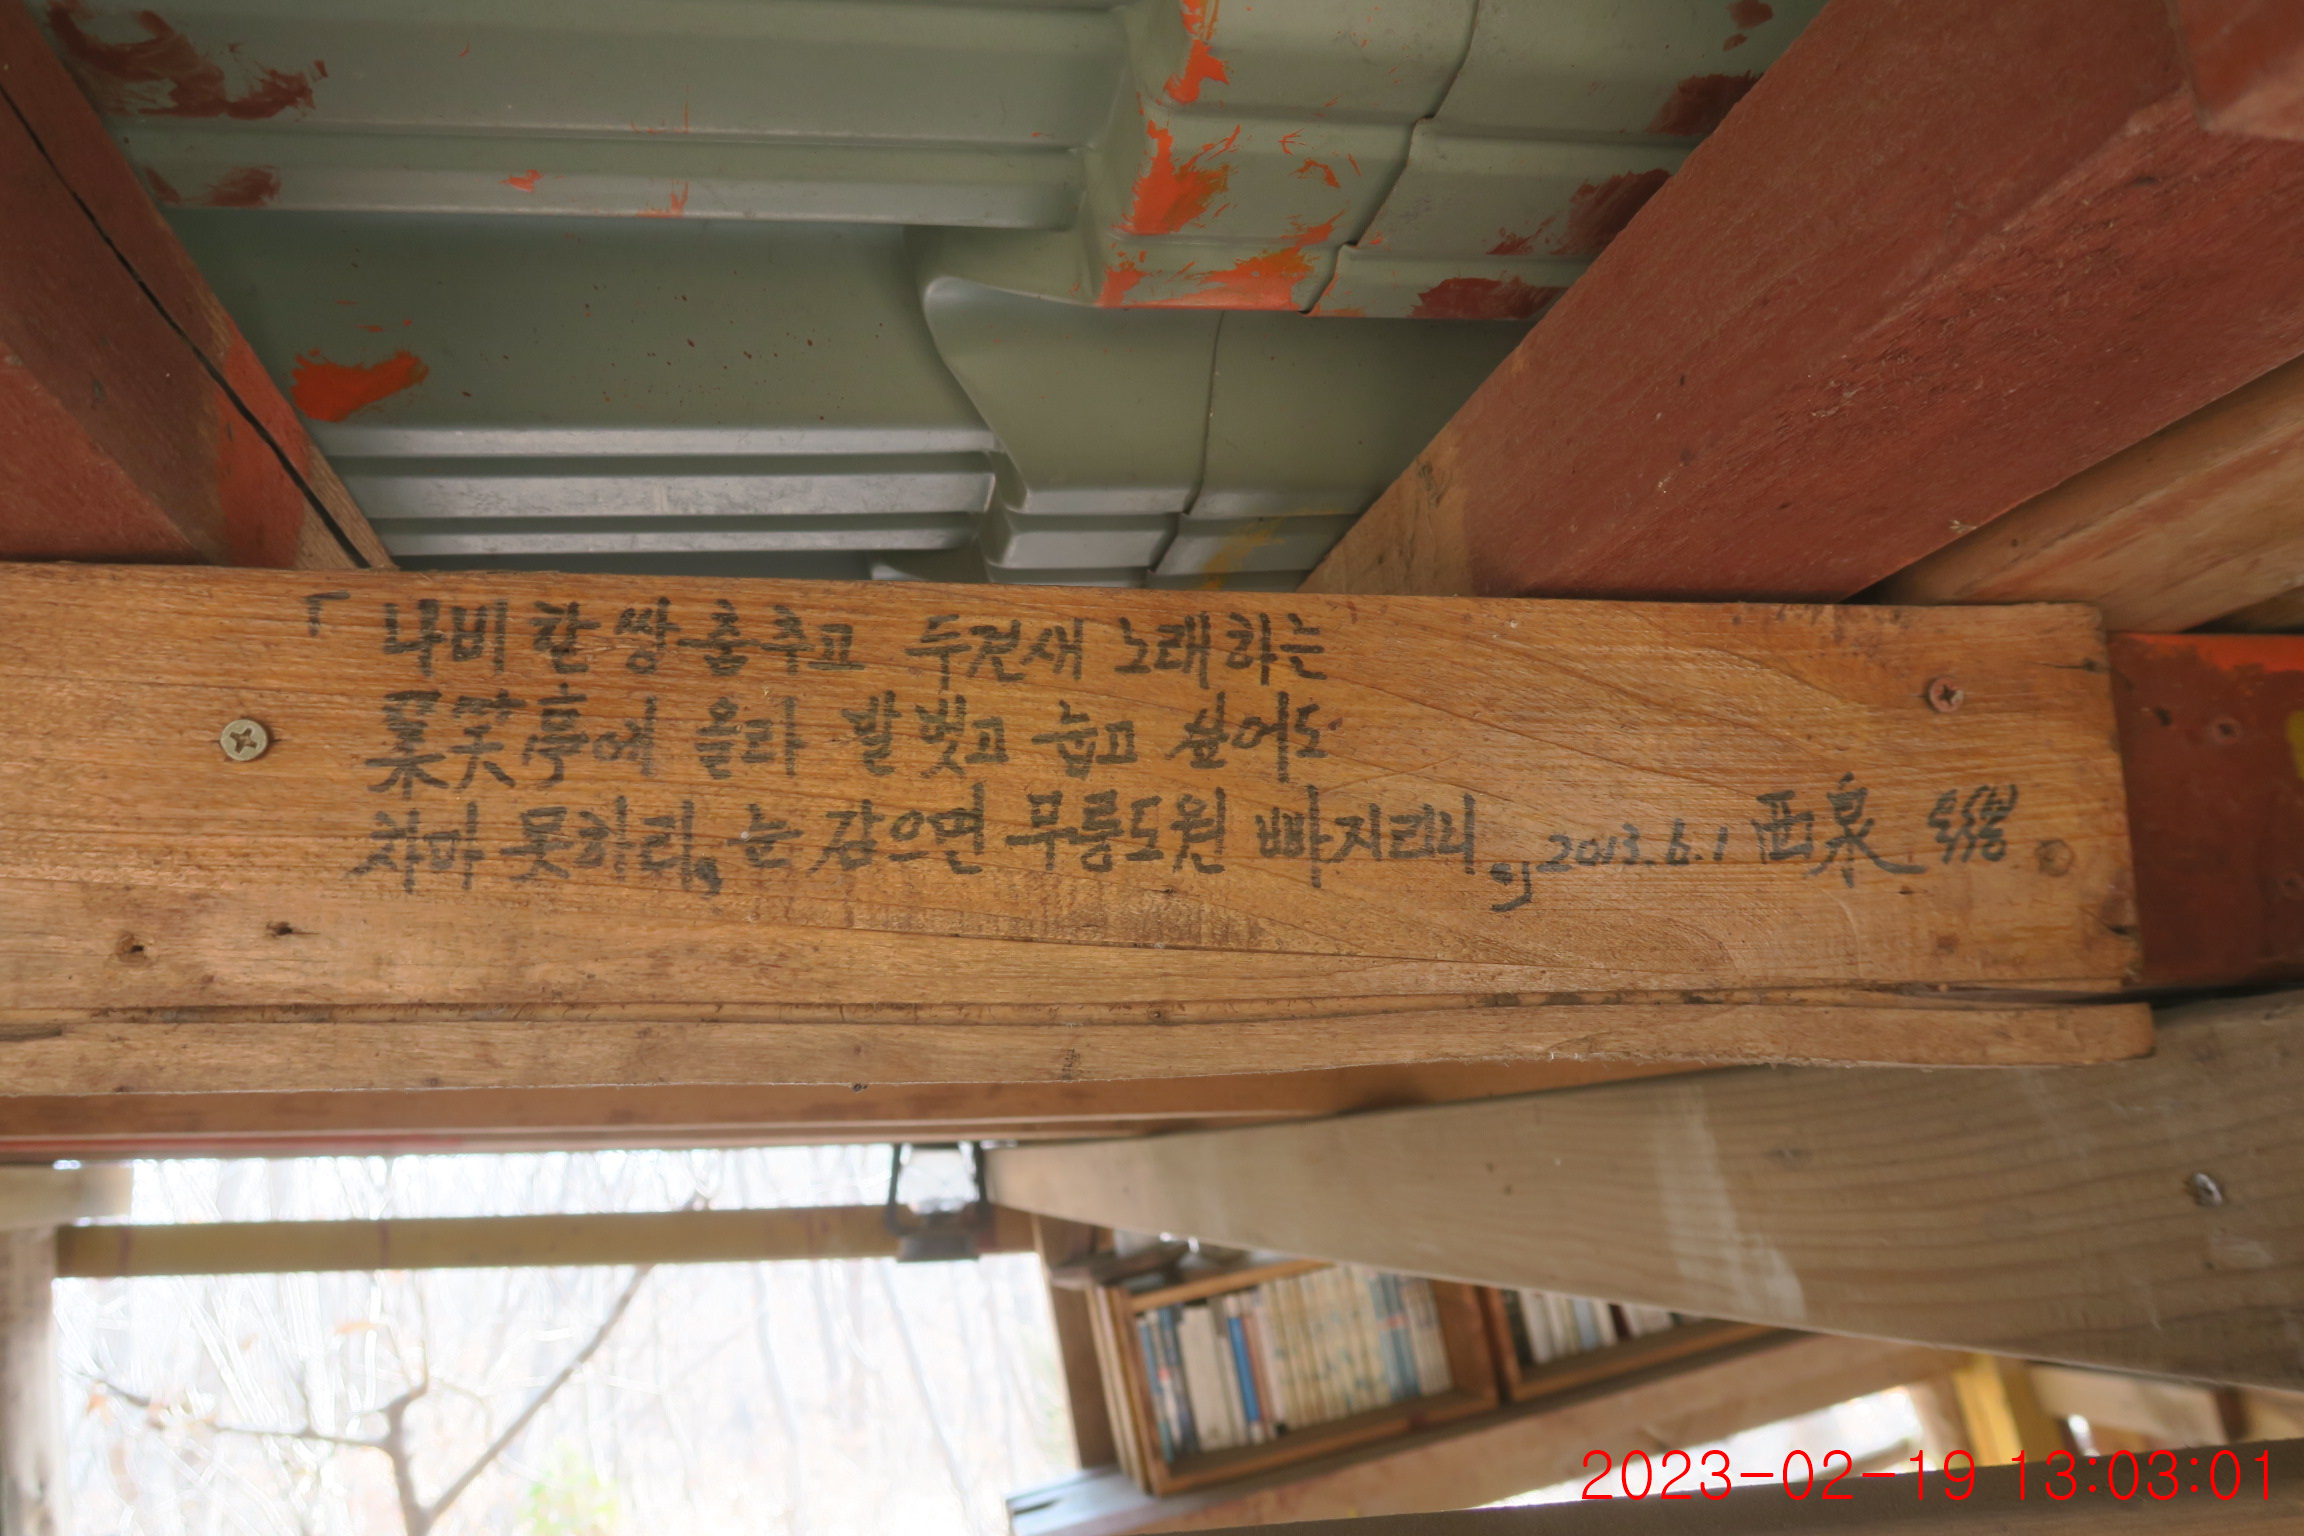 「나비 한 쌍 춤추고 두견새 노래하는
笑亭에 올라 발 벗고 눕고 싶어도
차마 못하리, 눈 감으면 무릉도원 빠지리니.」 2013. 6. 1 西泉
2023-02-19 13:03:01